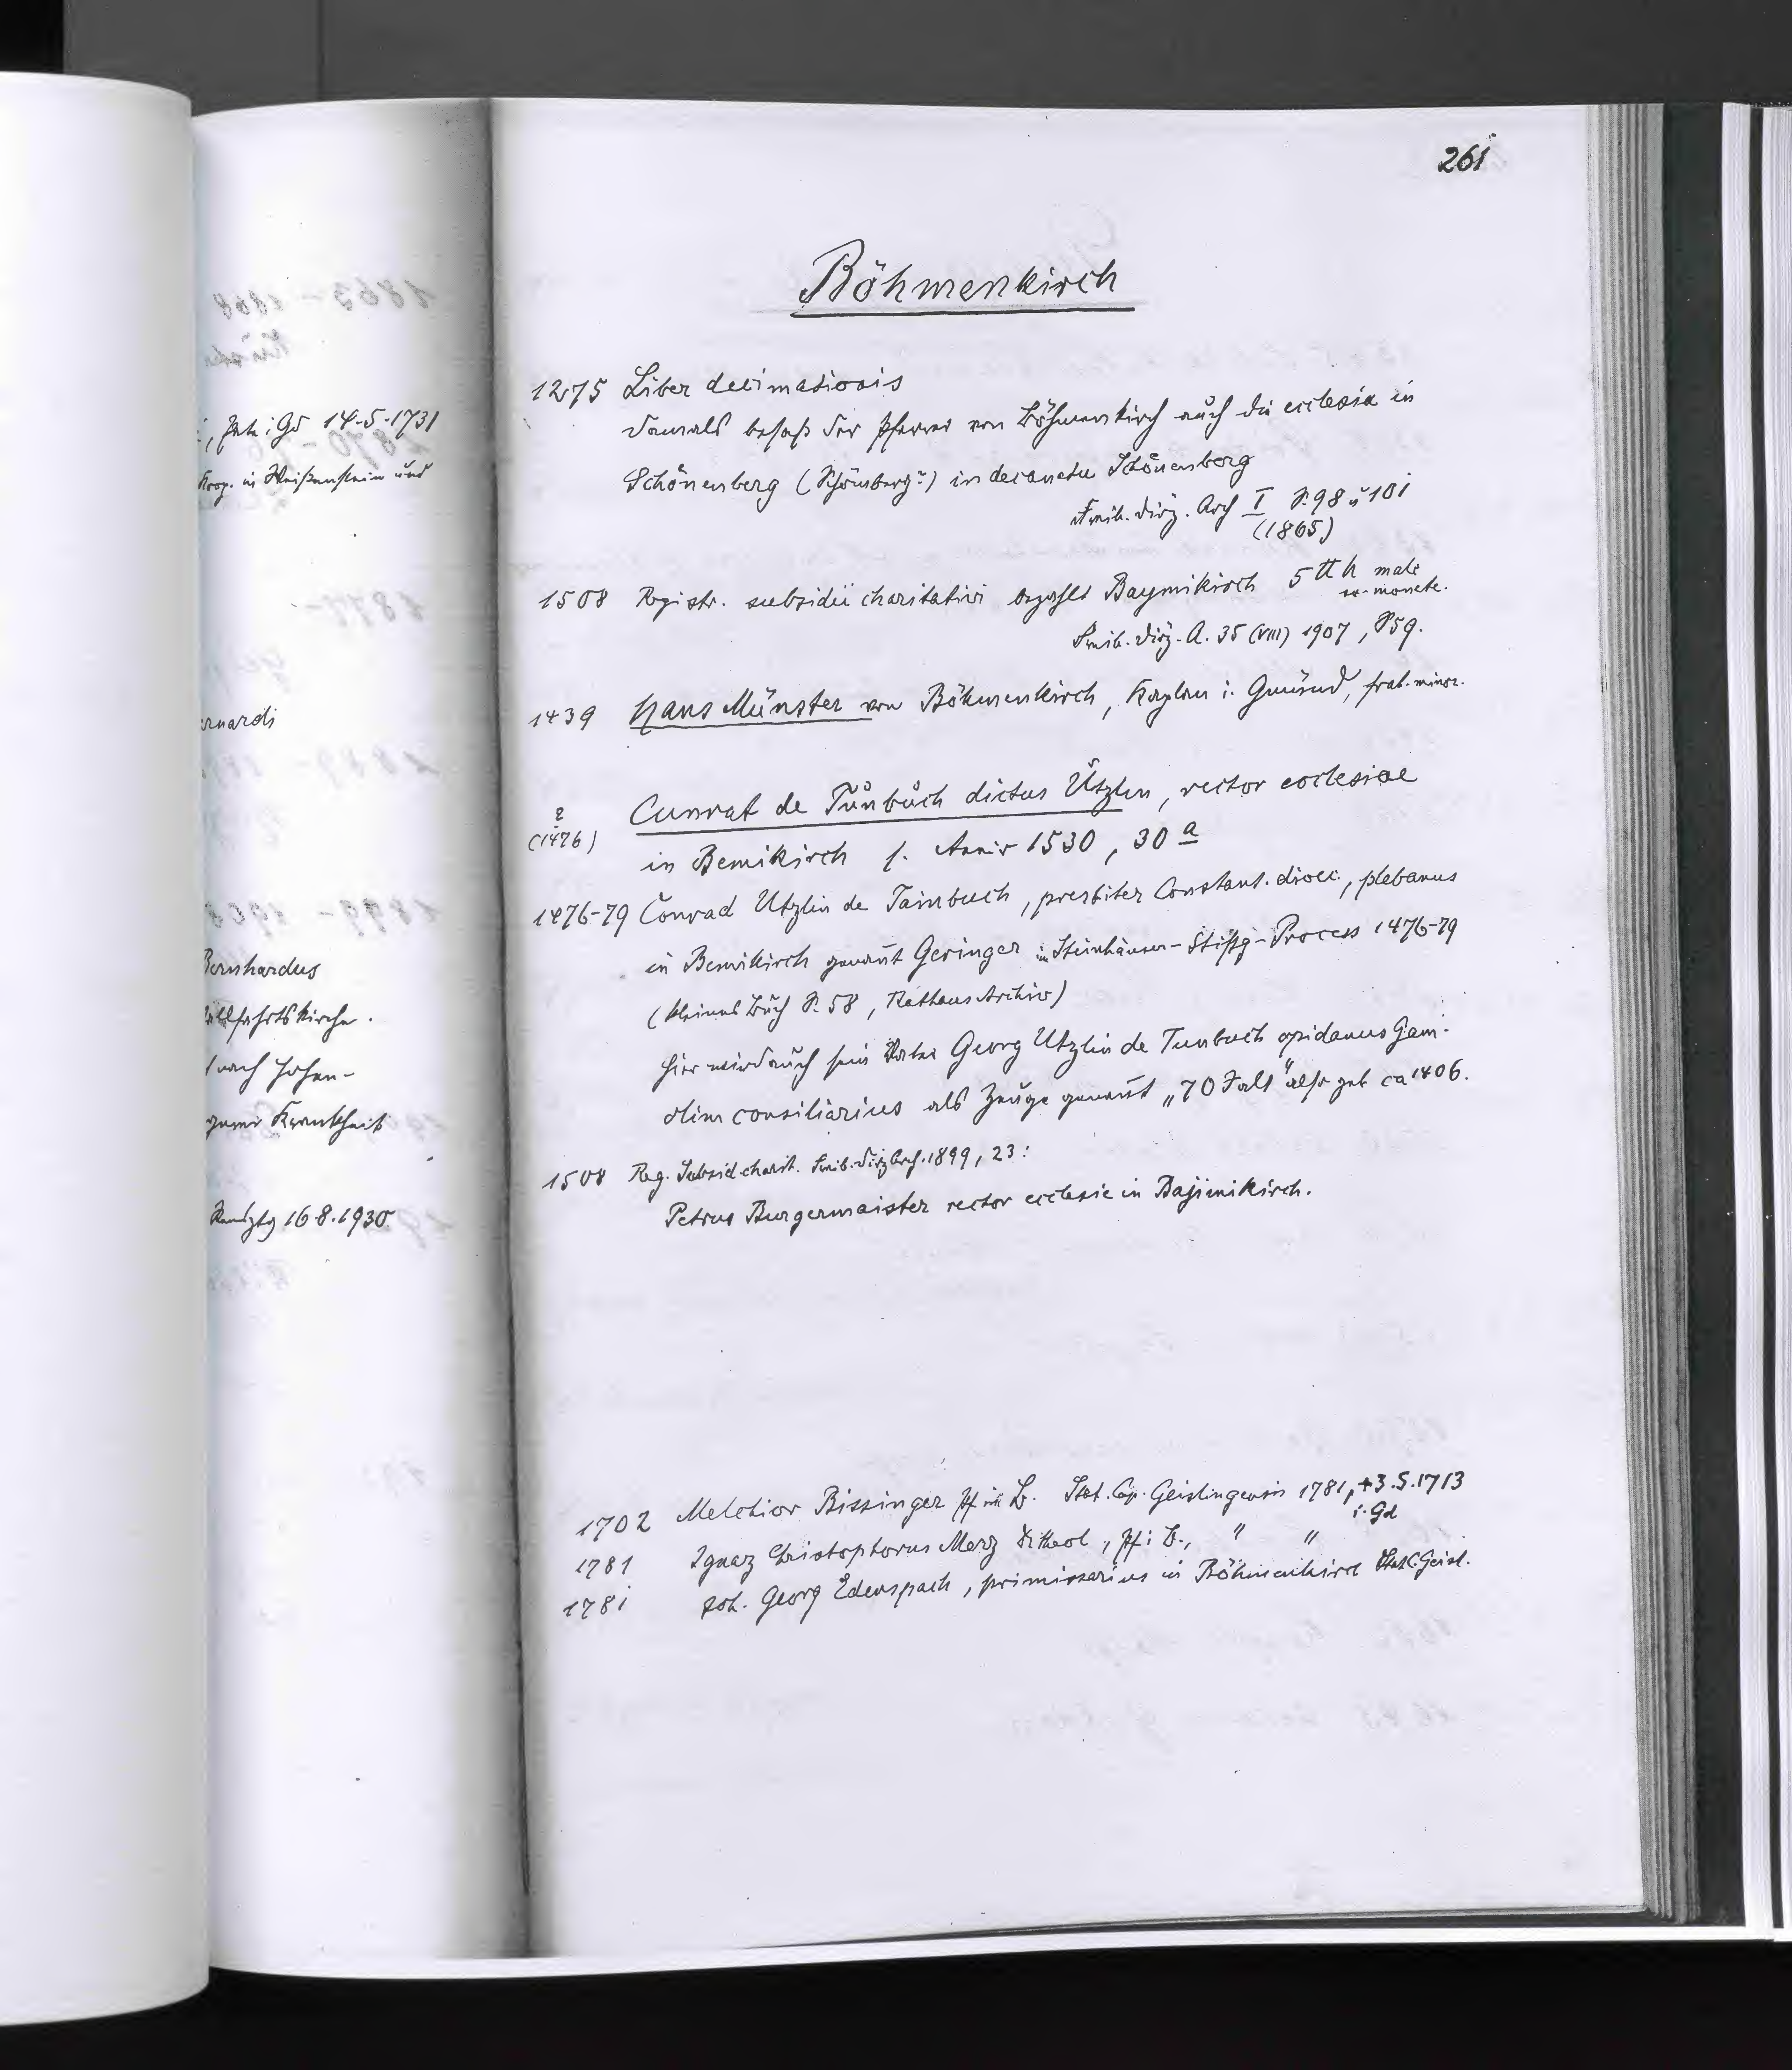 261
Böhmenkirch
1275 Liber decimationis
damals besaß der Pfarrer von Böhmenkirch auch die ecclesia in
Schönenberg (Schömberg?) in decanatu Schönenberg
Freib. Diöz. Arch I S. 98 u 101
(1865)
1508 Registr. subsidii charitativi bezahlt Baymikirch 5 ℔ h male
monete.
Freib. Diöz. A. 35 (VIII) 1907, S 59.
1439 Hans Münster von Böhmenkirch, Kaplan i. Gmünd, frat. minor.
?
(1476)
Cunrat de Tünbuch dictus Ützlin, rector ecclesiae
in Bemikirch f. Anniv 1530, 30 a
1476-79 Conrad Utzlin de Tainbuch, presbiter Constant. dioec., plebanus
in Bemikirch genannt Geringer im Steinhäuser-Stiftg-Process 1476-79
(kleines Buch S. 58, Rathaus Archiv)
hier wird auch sein Vater Georg Utzlin de Tunbuch opidanus Gam.
olim consiliarius als Zeuge genannt „70 Jalt" also geb ca 1406.
1508 Reg. Subsid charit. Freib. Diöz Arch. 1899, 23:
Petrus Burgermaister rector ecclesie in Bajimikirch.
1702 Melchior Bissinger Pf in B. Stat. Cap. Geislingensis 1781, +3.5.1713
i. Gd
1781 Ignaz Christophorus Merz theol, Pf i B., " "
1781 Joh. Georg Edenspach, primissarius in Böhmenkirch Stat C. Geisl.
i Gd 14.5.1731
Krop. in Weißenstein und
ernardi
Bernhardus
allfahrtskirche.
nach Hohen-
gener Krankheit
16.8.1930